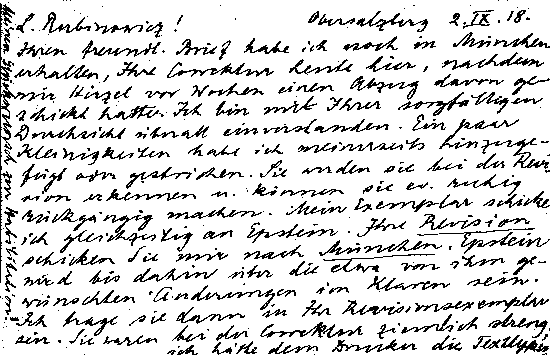 L. Rubinowicz! Obersalzberg 2. IX. 18.
Ihren freundl. Brief habe ich noch in München
erhalten, Ihre Correktur heute hier, nachdem
mir Hirzel vor Wochen einen Abzug davon ge-
schickt hatte. Ich bin mit Ihrer sorgfältigen
Durchsicht überall einverstanden. Ein paar
Kleinigkeiten habe ich meinerseits hinzuge-
fügt oder gestrichen. Sie werden sie bei der Revi-
sion erkennen u. können sie ev. ruhig
rückgängig machen. Mein Exemplar schicke
ich gleichzeitig an Epstein. Ihre Revision
schicken Sie mir nach München. Epstein
wird bis dahin über die etwa von ihm ge-
wünschten Änderungen im Klaren sein.
Ich trage sie dann in Ihr Revisionsexemplar
ein. Sie waren bei der Correktur ziemlich streng,
ich hätte dem Drucker die Textlypen
Meinen Glückwunsch zur Habilitation!